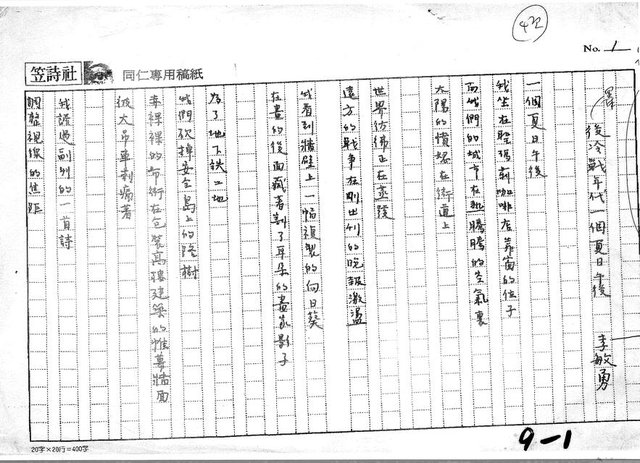 422
No. 1
笠詩社 同仁專用稿紙
後冷戰年代一個夏日午後 李敏勇
一個夏日午後
我坐在壁得咖啡店靠窗的位子
而我們的城市在熱騰騰的空氣裏
太陽的憤怒在街道上
世界彷彿正在蒸發
遠方的戰爭在剛出刊的晚報激盪
我看到牆壁上一幅複製的向日葵
在畫的後面藏著割了耳朵的畫家影子
為了地下鉄工地
我們砍掉安全島上的路樹
赤裸裸的
在包裝高樓建築的帷幕牆面
被大吊車刺痛著
我讀過副刊的一首詩
調整視線的焦距
20字×20行=400字
9-1